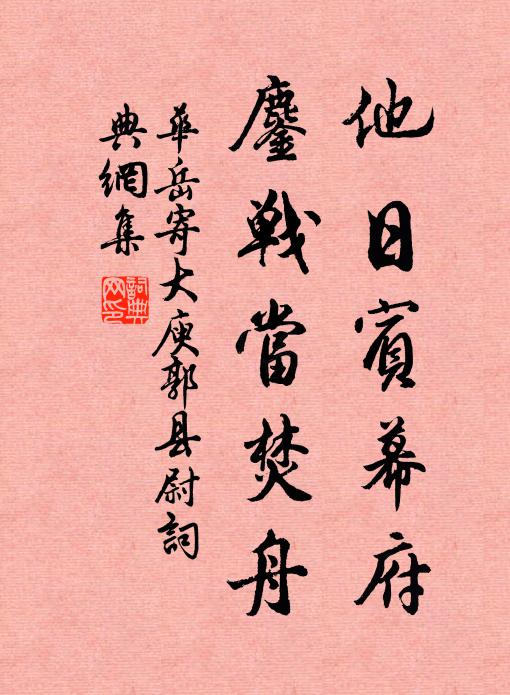 他日賓幕府
鏖戰當焚舟
華岳寄大庾郭县尉詞
典網集
詞典網印